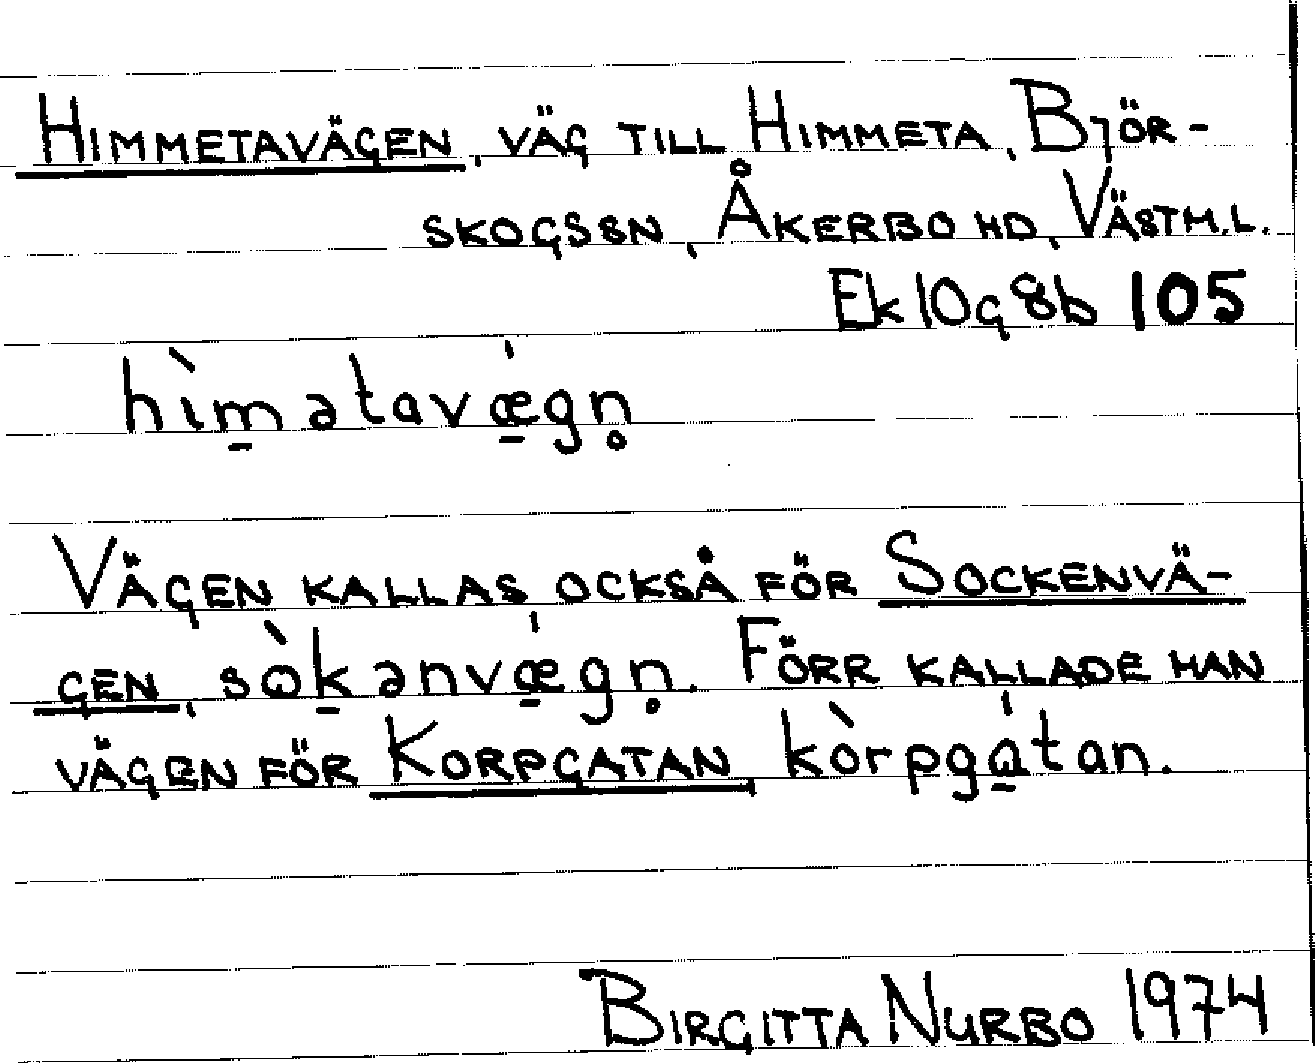 Himmetavägen, väg till Himmeta, Björ-
skogs sn, Åkerbo hd, Västm.l.
Ek 10g8b 105
hìm̱ətavǽ̱gn̥
Vägen kallas också för Sockenvä-
gen, sòḵənvǽ̱gn̥. Förr kallade man
vägen för Korpgatan, kòrpgá̱tan.
Birgitta Nurbo 1974